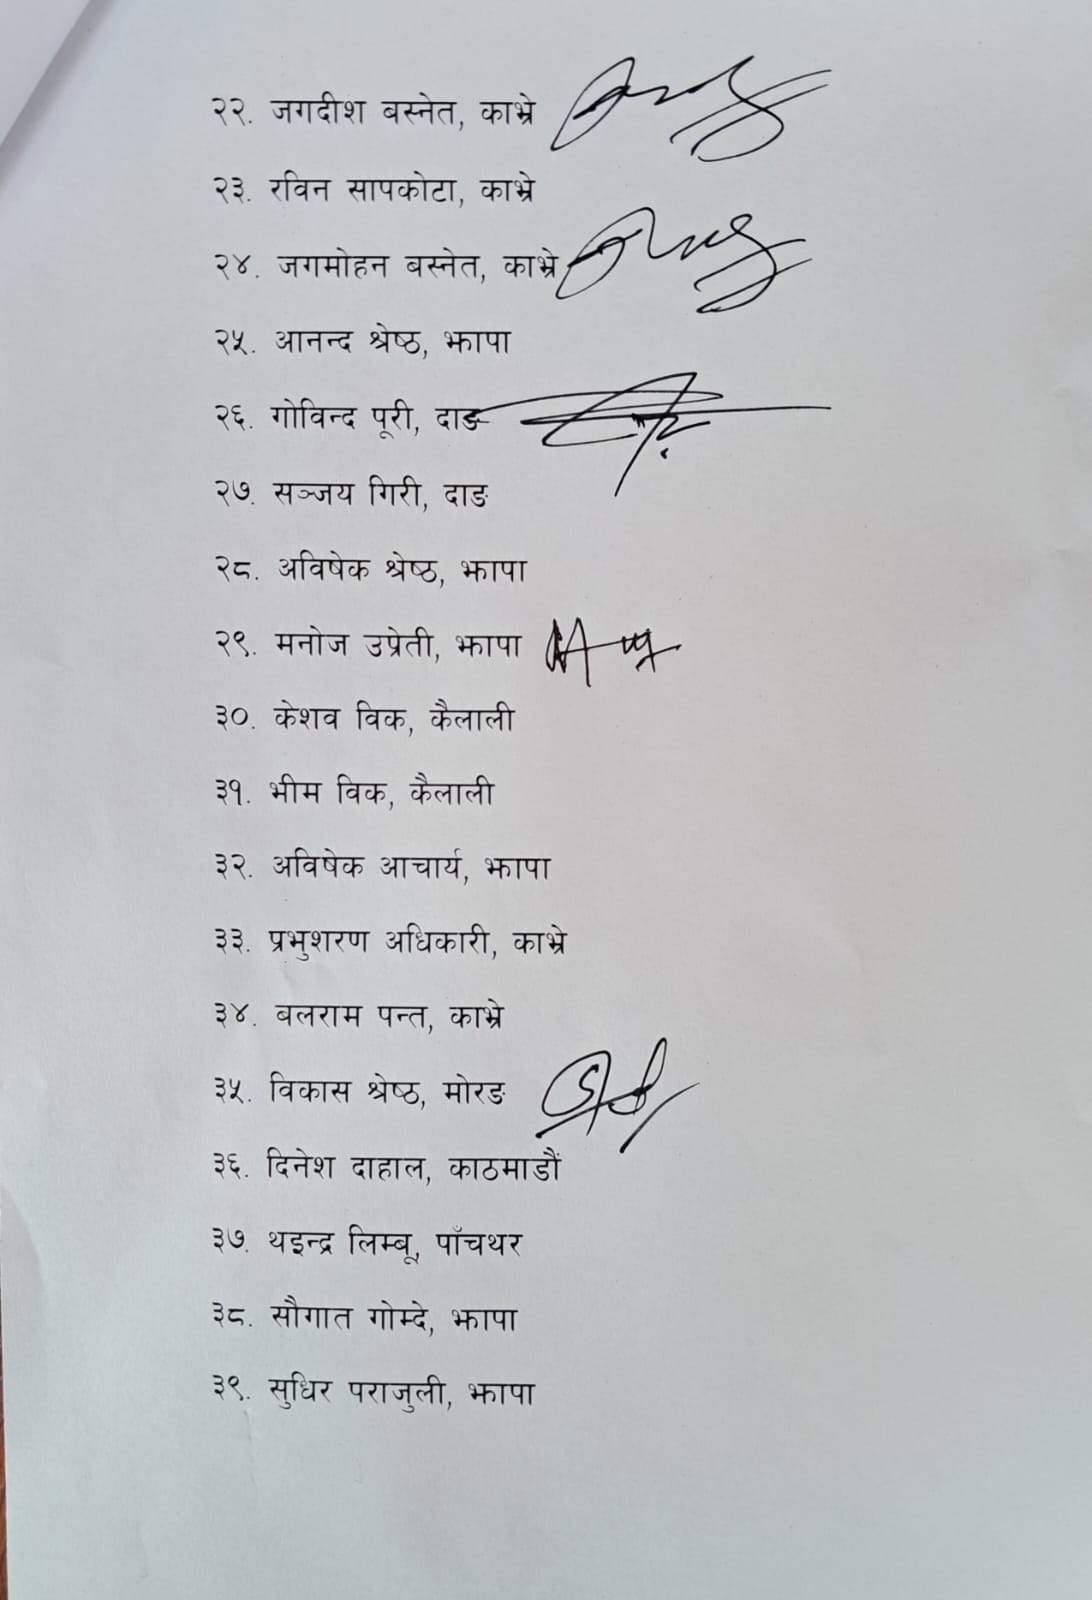 २२. जगदीश बस्नेत, काभ्रे
२३. रविन सापकोटा, काभ्रे
२४. जगमोहन बस्नेत, काभ्रे
२५. आनन्द श्रेष्ठ, झापा
२६. गोविन्द पूरी, दाङ
२७. सञ्जय गिरी, दाङ
२८. अविषेक श्रेष्ठ, झापा
२९. मनोज उप्रेती, झापा
३०. केशव विक, कैलाली
३१. भीम विक, कैलाली
३२. अविषेक आचार्य, झापा
३३. प्रभुशरण अधिकारी, काभ्रे
३४. बलराम पन्त, काभ्रे
३५. विकास श्रेष्ठ, मोरङ
३६. दिनेश दाहाल, काठमाडौं
३७. थइन्द्र लिम्बू, पाँचथर
३८. सौगात गोम्दे, झापा
३९. सुधिर पराजुली, झापा